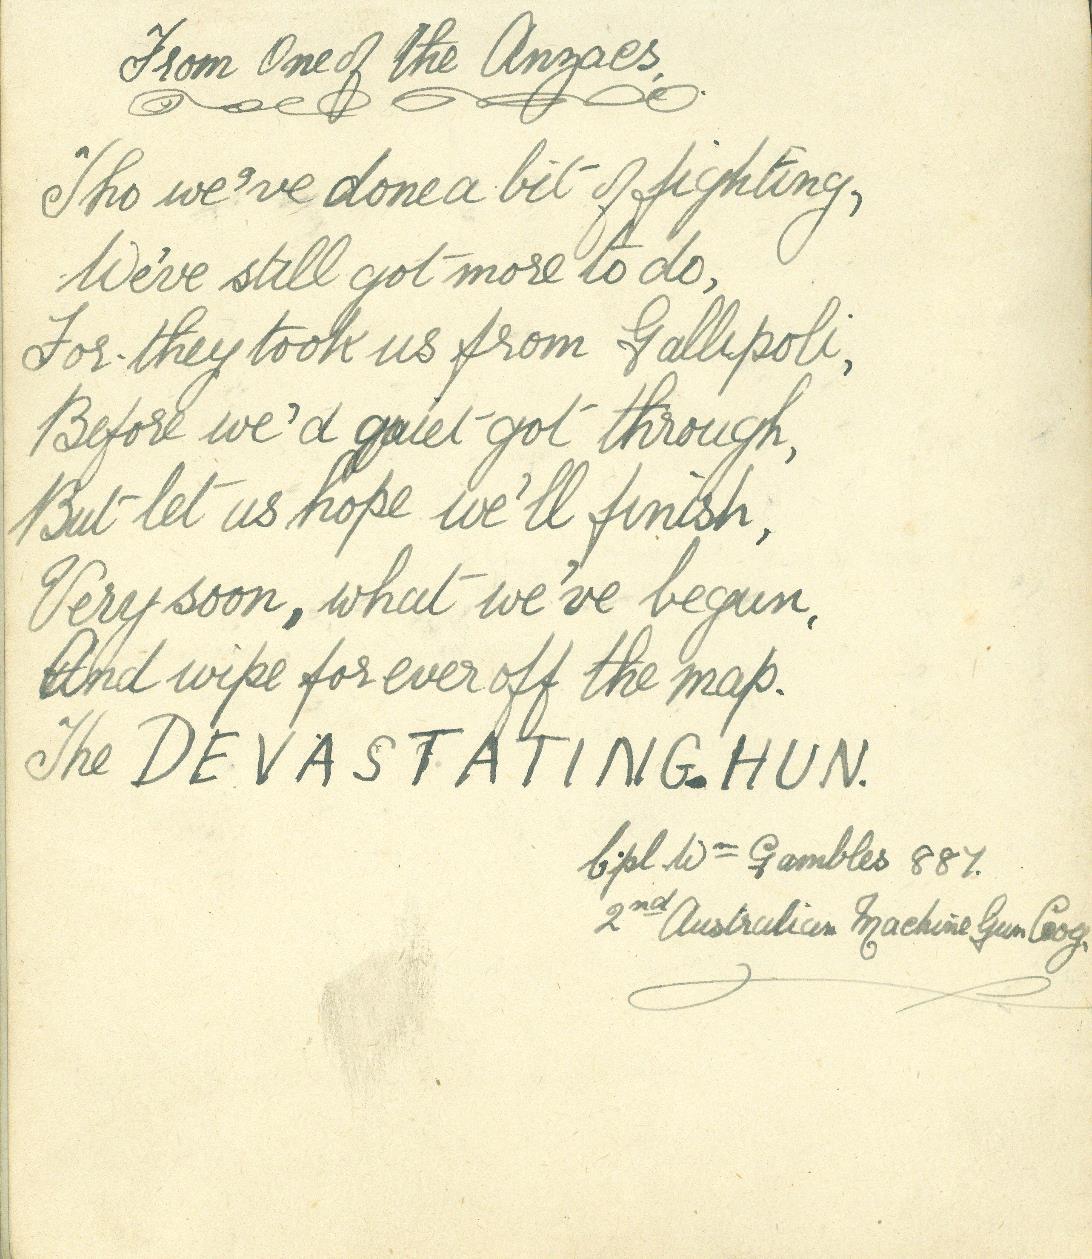 From One of the Anzacs.
Tho we've done a bit of fighting,
We've still got more to do,
For they took us from Gallipoli,
Before we'd quiet got through,
But let us hope we'll finish,
Very soon, what we've begun,
And wipe for ever off the map.
The DEVASTATING HUN.
Cpl. Wm Gambles 887.
2nd Australian Machine Gun Coy.